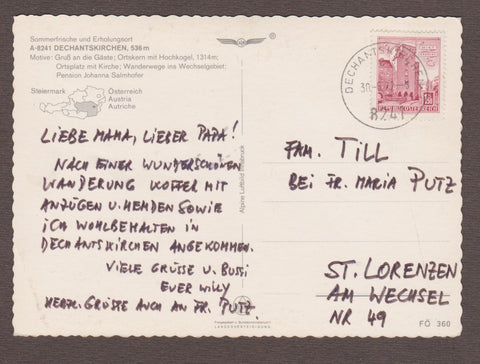 Sommerfrische und Erholungsort
A-8241 DECHANTSKIRCHEN, 536 m
Motive: Gruß an die Gäste; Ortskern mit Hochkogel, 1314m;
Ortsplatz mit Kirche; Wanderwege ins Wechselgebiet;
Pension Johanna Salmhofer
Steiermark
Österreich
Austria
Autriche
LIEBE MAMA, LIEBER PAPA!
NACH EINER WUNDERSCHÖNEN
WANDERUNG KOFFER MIT
ANZÜGEN U. HEMDEN SOWIE
ICH WOHLBEHALTEN IN
DECHANTSKIRCHEN ANGEKOMMEN.
VIELE GRÜSSE U. BUSSI
EUER WILLY
HERZL. GRÜSSE AUCH AN FR. PUTZ.
Alpine Luftbild Innsbruck
LANDESVERTEIDIGUNG
8241
REPUBLIK ÖSTERREICH
FAM. TILL
BEI FR. MARIA PUTZ
ST. LORENZEN
AM WECHSEL
NR 49
FÖ 360